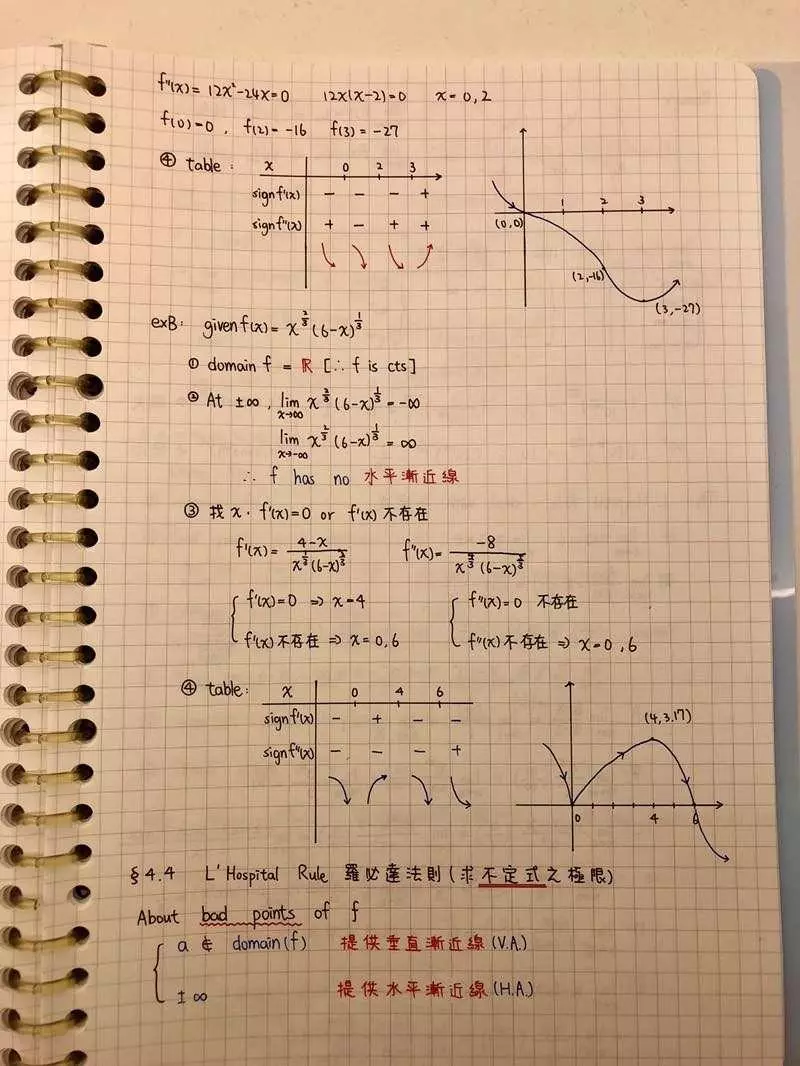 f''(x) = 12x²-24x=0 12x(x-2)=0 x=0,2
f(0)=0, f(2)=-16 f(3)=-27
④ table: x 0 2 3
sign f'(x) - - - +
sign f''(x) + - + +
1 2 3
(0,0)
(2,-16)
(3,-27)
exB: given f(x)= x^{2/3}(6-x)^{1/3}
① domain f = ℝ [∴ f is cts]
② At ±∞, lim_{x→∞} x^{2/3}(6-x)^{1/3} = -∞
lim_{x→-∞} x^{2/3}(6-x)^{1/3} = ∞
∴ f has no 水平漸近線
③ 找 x. f'(x)=0 or f'(x) 不存在
f'(x)= (4-x)/(x^{1/3}(6-x)^{2/3}) f''(x)= -8/(x^{4/3}(6-x)^{5/3})
f'(x)=0 ⇒ x=4 f''(x)=0 不存在
f'(x) 不存在 ⇒ x=0,6 f''(x) 不存在 ⇒ x=0,6
④ table: x 0 4 6
sign f'(x) - + - -
sign f''(x) - - - +
(4,3.17)
0 4 6
§4.4 L'Hospital Rule 羅必達法則(求不定式之極限)
About bad points of f
a ∉ domain(f) 提供垂直漸近線(V.A.)
±∞ 提供水平漸近線(H.A.)